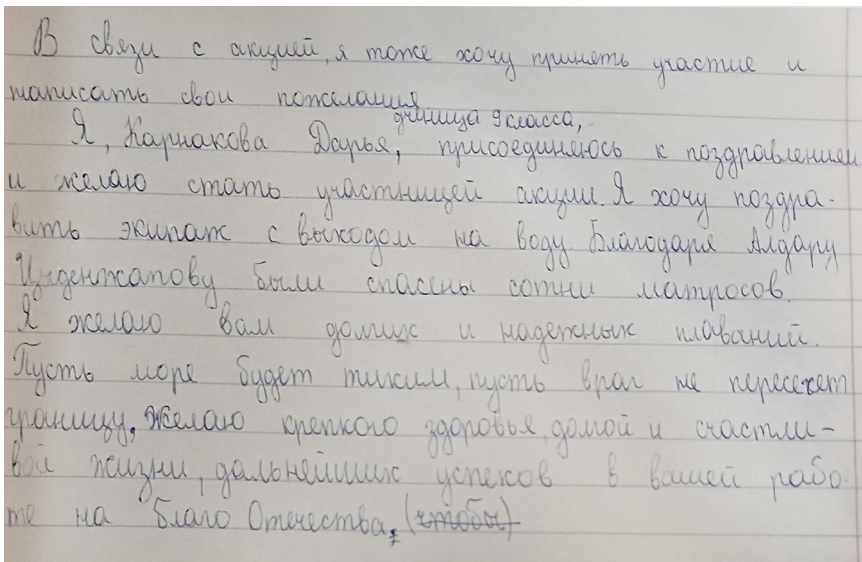 В связи с акцией, я тоже хочу принять участие и
написать свои пожелания
ученица 9 класса,
Я, Карнакова Дарья, присоединяюсь к поздравлением
и желаю стать участницей акции. Я хочу поздра-
вить экипаж с выходом на воду. Благодаря Алдару
Цыденжапову были спасены сотни матросов.
Я желаю вам долгих и надежных плаваний.
Пусть море будет тихим, пусть враг не пересекет
границу. Желаю крепкого здоровья, долгой и счастли-
вой жизни, дальнейших успехов в вашей рабо-
те на благо Отечества. (чтобы)